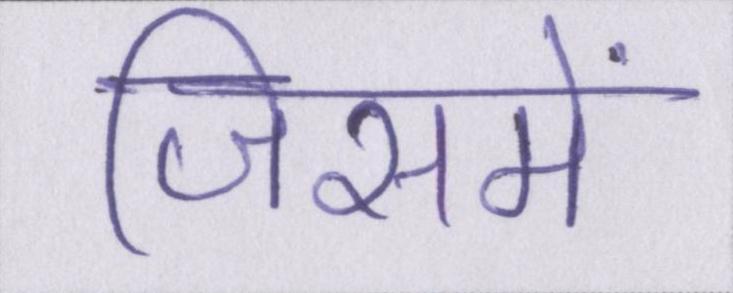 जिसमें